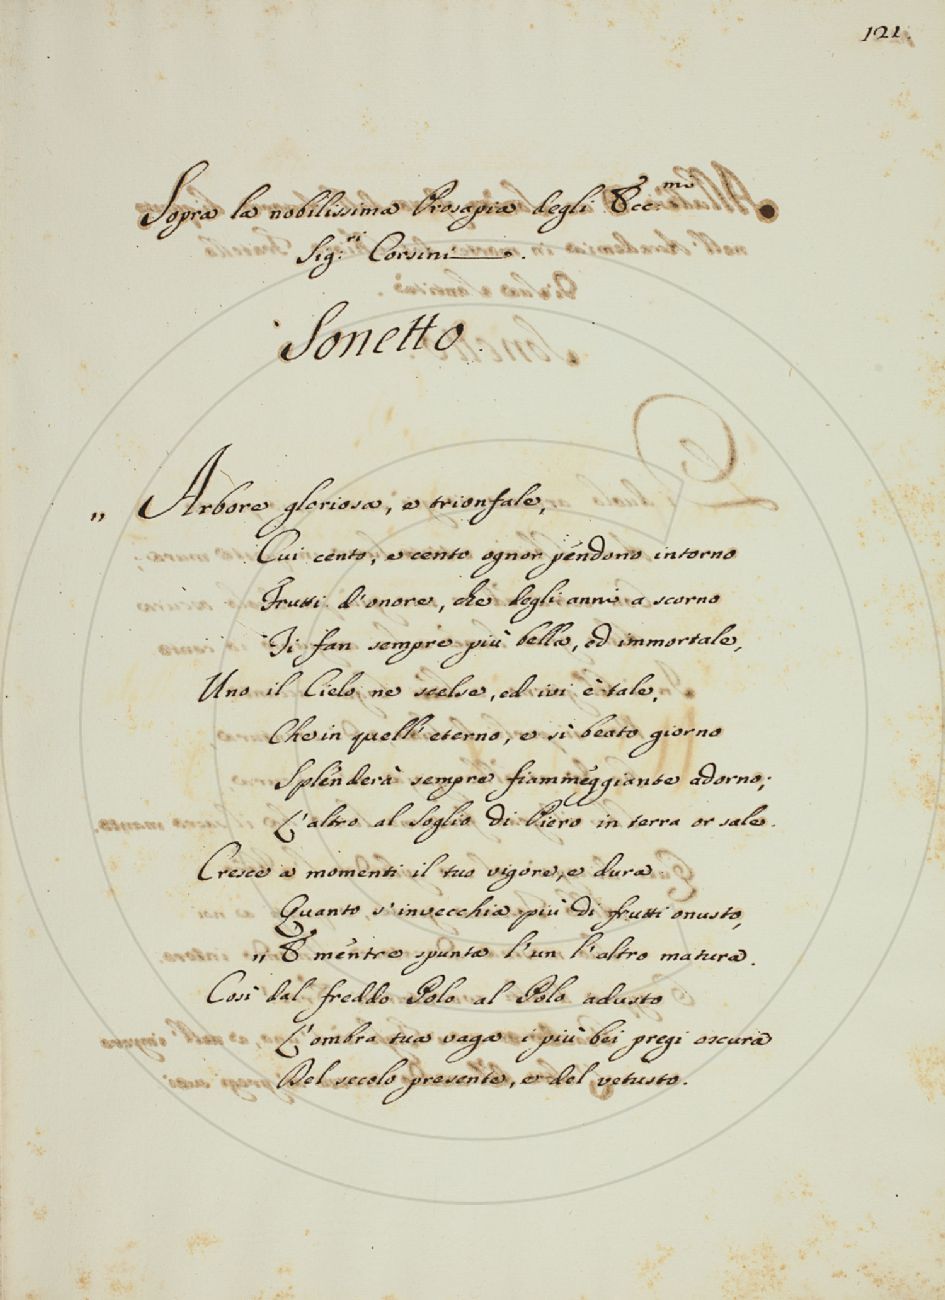 121.
Sopra la nobilissima Prosapia degli Ecc.mi
Sig.ri Corsini.
Sonetto.
„ Arbore gloriosa, e trionfale,
Cui cento, e cento ognor pendono intorno
Frutti d'onore, che degli anni a scorno
Ti fan sempre più bella, ed immortale,
Uno il Cielo ne scelse, ed ivi è tale,
Che in quell'eterno, e sì beato giorno
Splenderà sempre fiammeggiante adorno;
L'altro al soglio di Piero in terra or sale.
Cresce a momenti il tuo vigore, e dura
Quanto s'invecchia più di frutti onusto,
„ E mentre spunta l'un l'altro matura.
Così dal freddo Polo al Polo adusto
L'ombra tua vaga i più bei pregi oscura
Del secolo presente, e del vetusto.